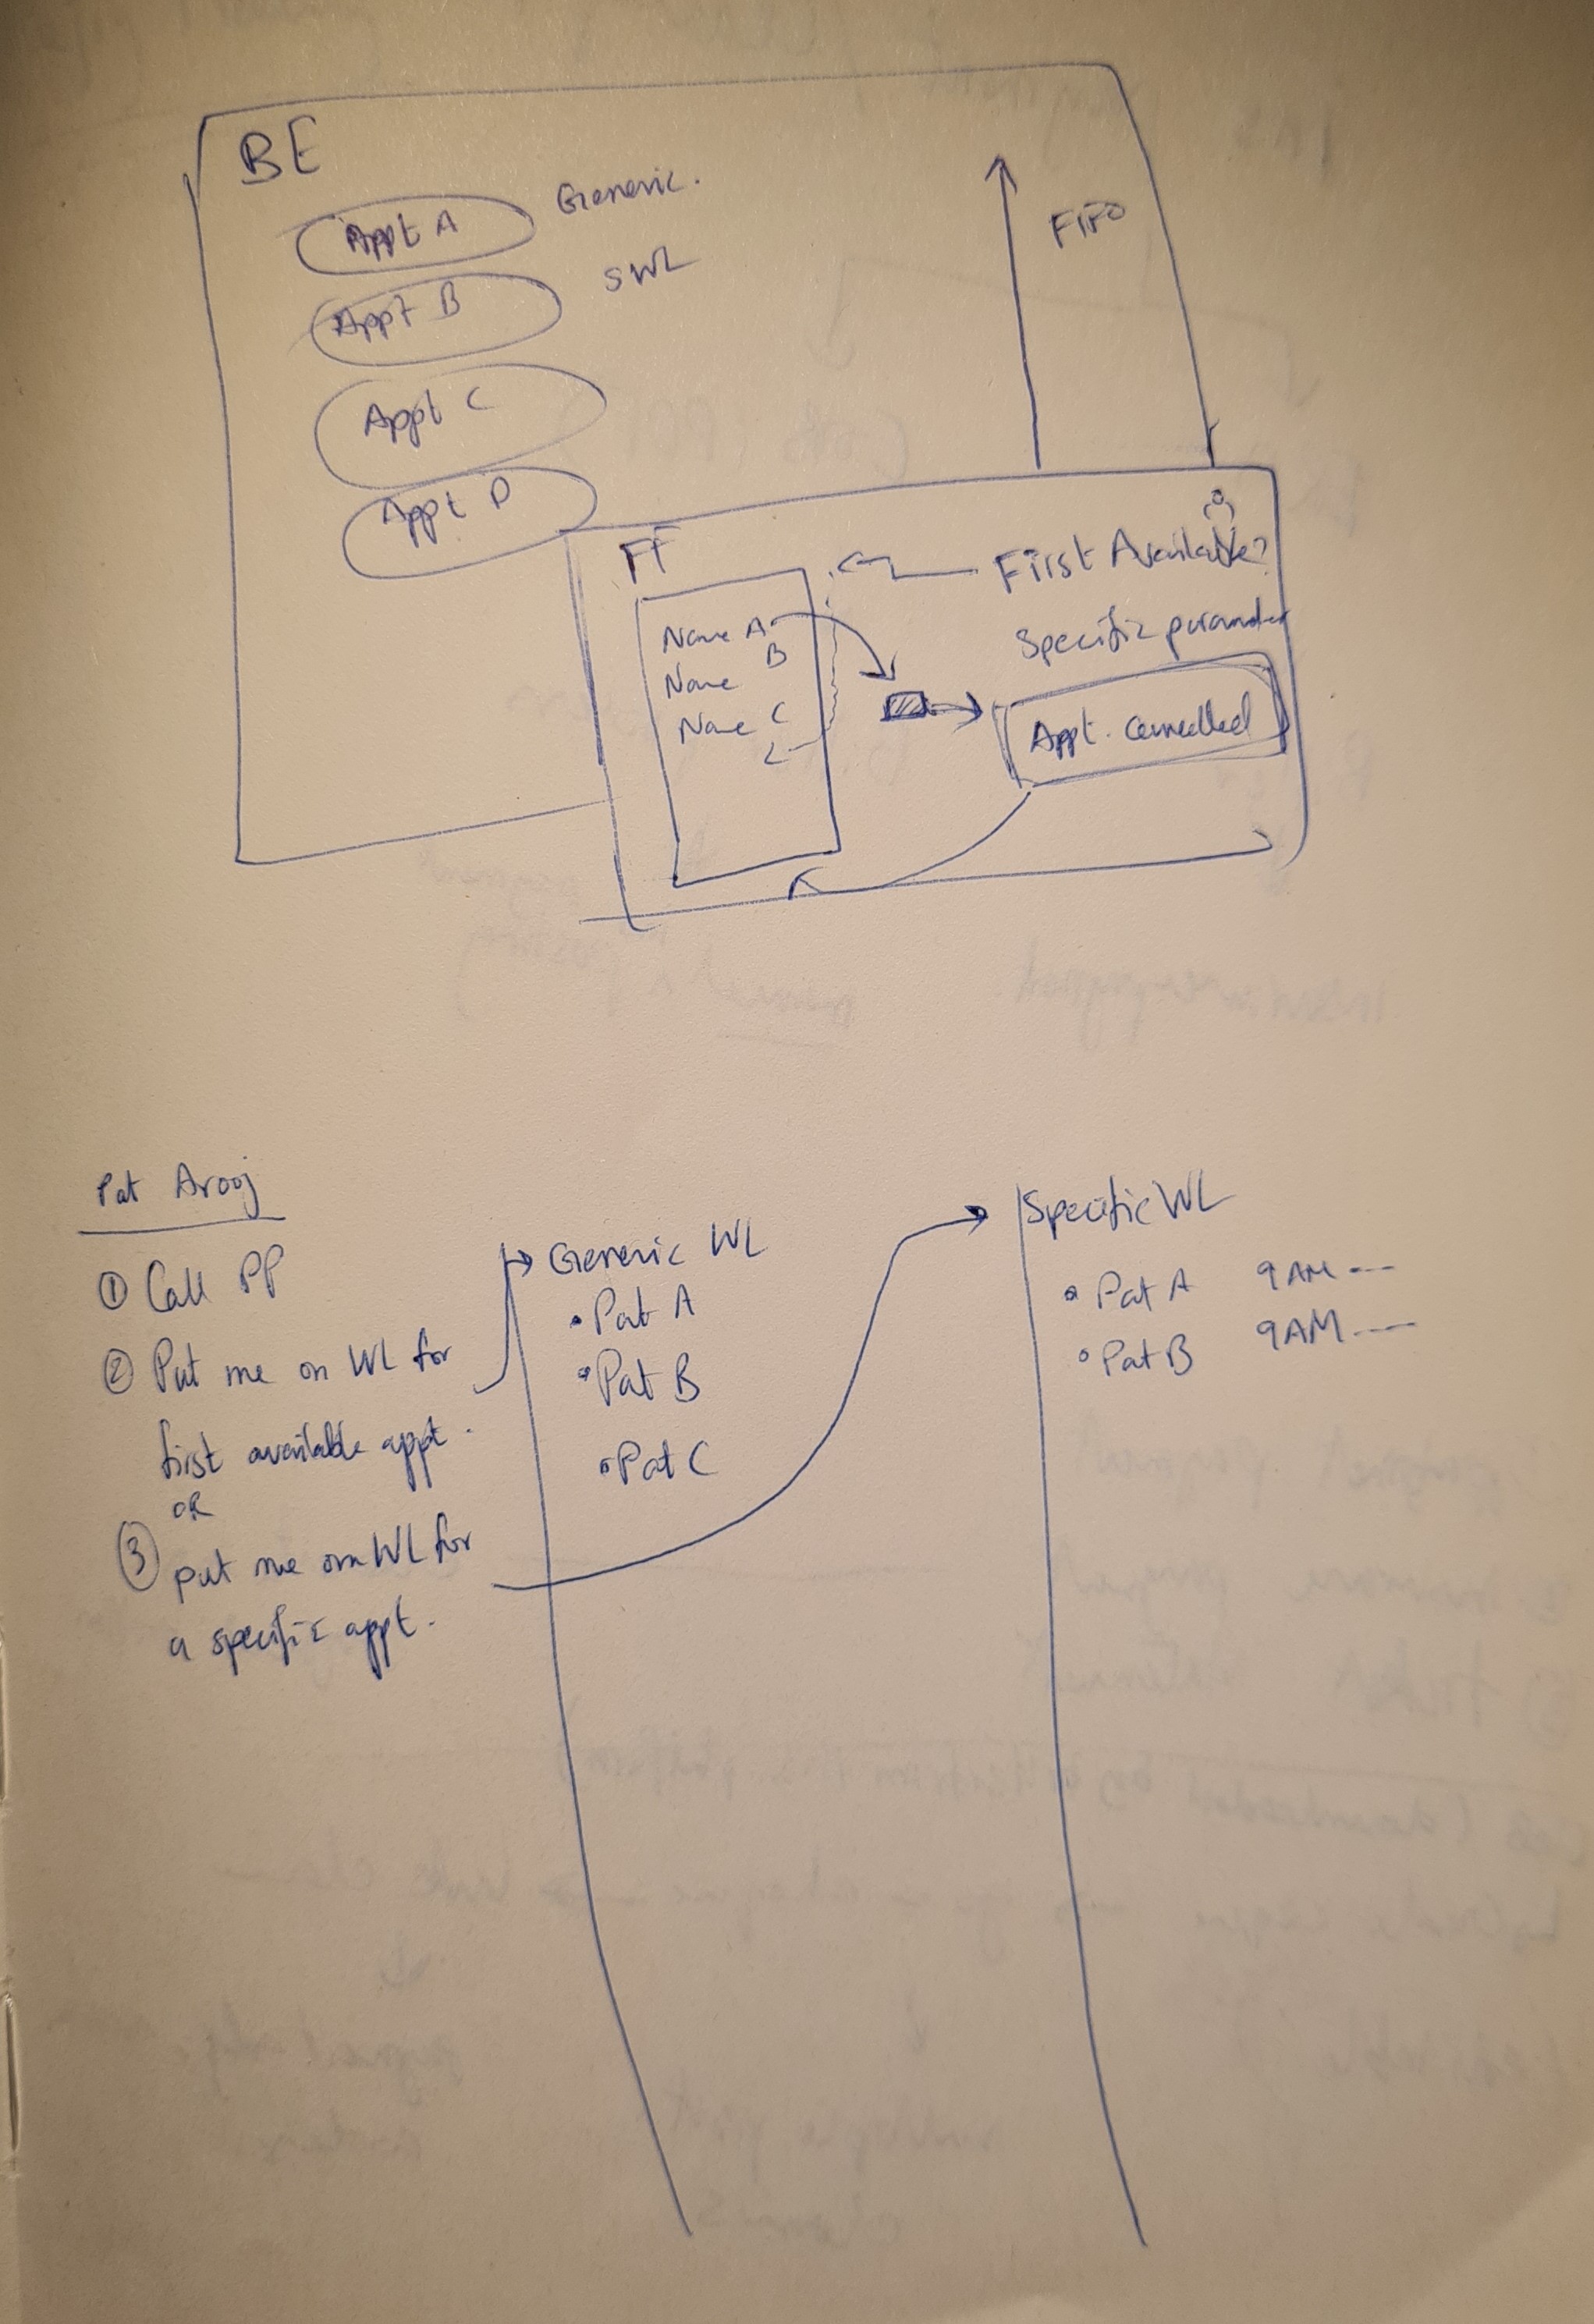 BE
Appt A
Generic.
Appt B
SWL
Appt C
Appt D
FIFO
FF
First Available?
Name A
B
Name
Name C
Specific
Appt. Cancelled
Pat Arooj
① Call PP
② Put me on WL for
first available appt.
OR
③ put me on WL for
a specific appt.
Generic WL
• Pat A
• Pat B
• Pat C
Specific WL
• Pat A 9AM ---
• Pat B 9AM ---